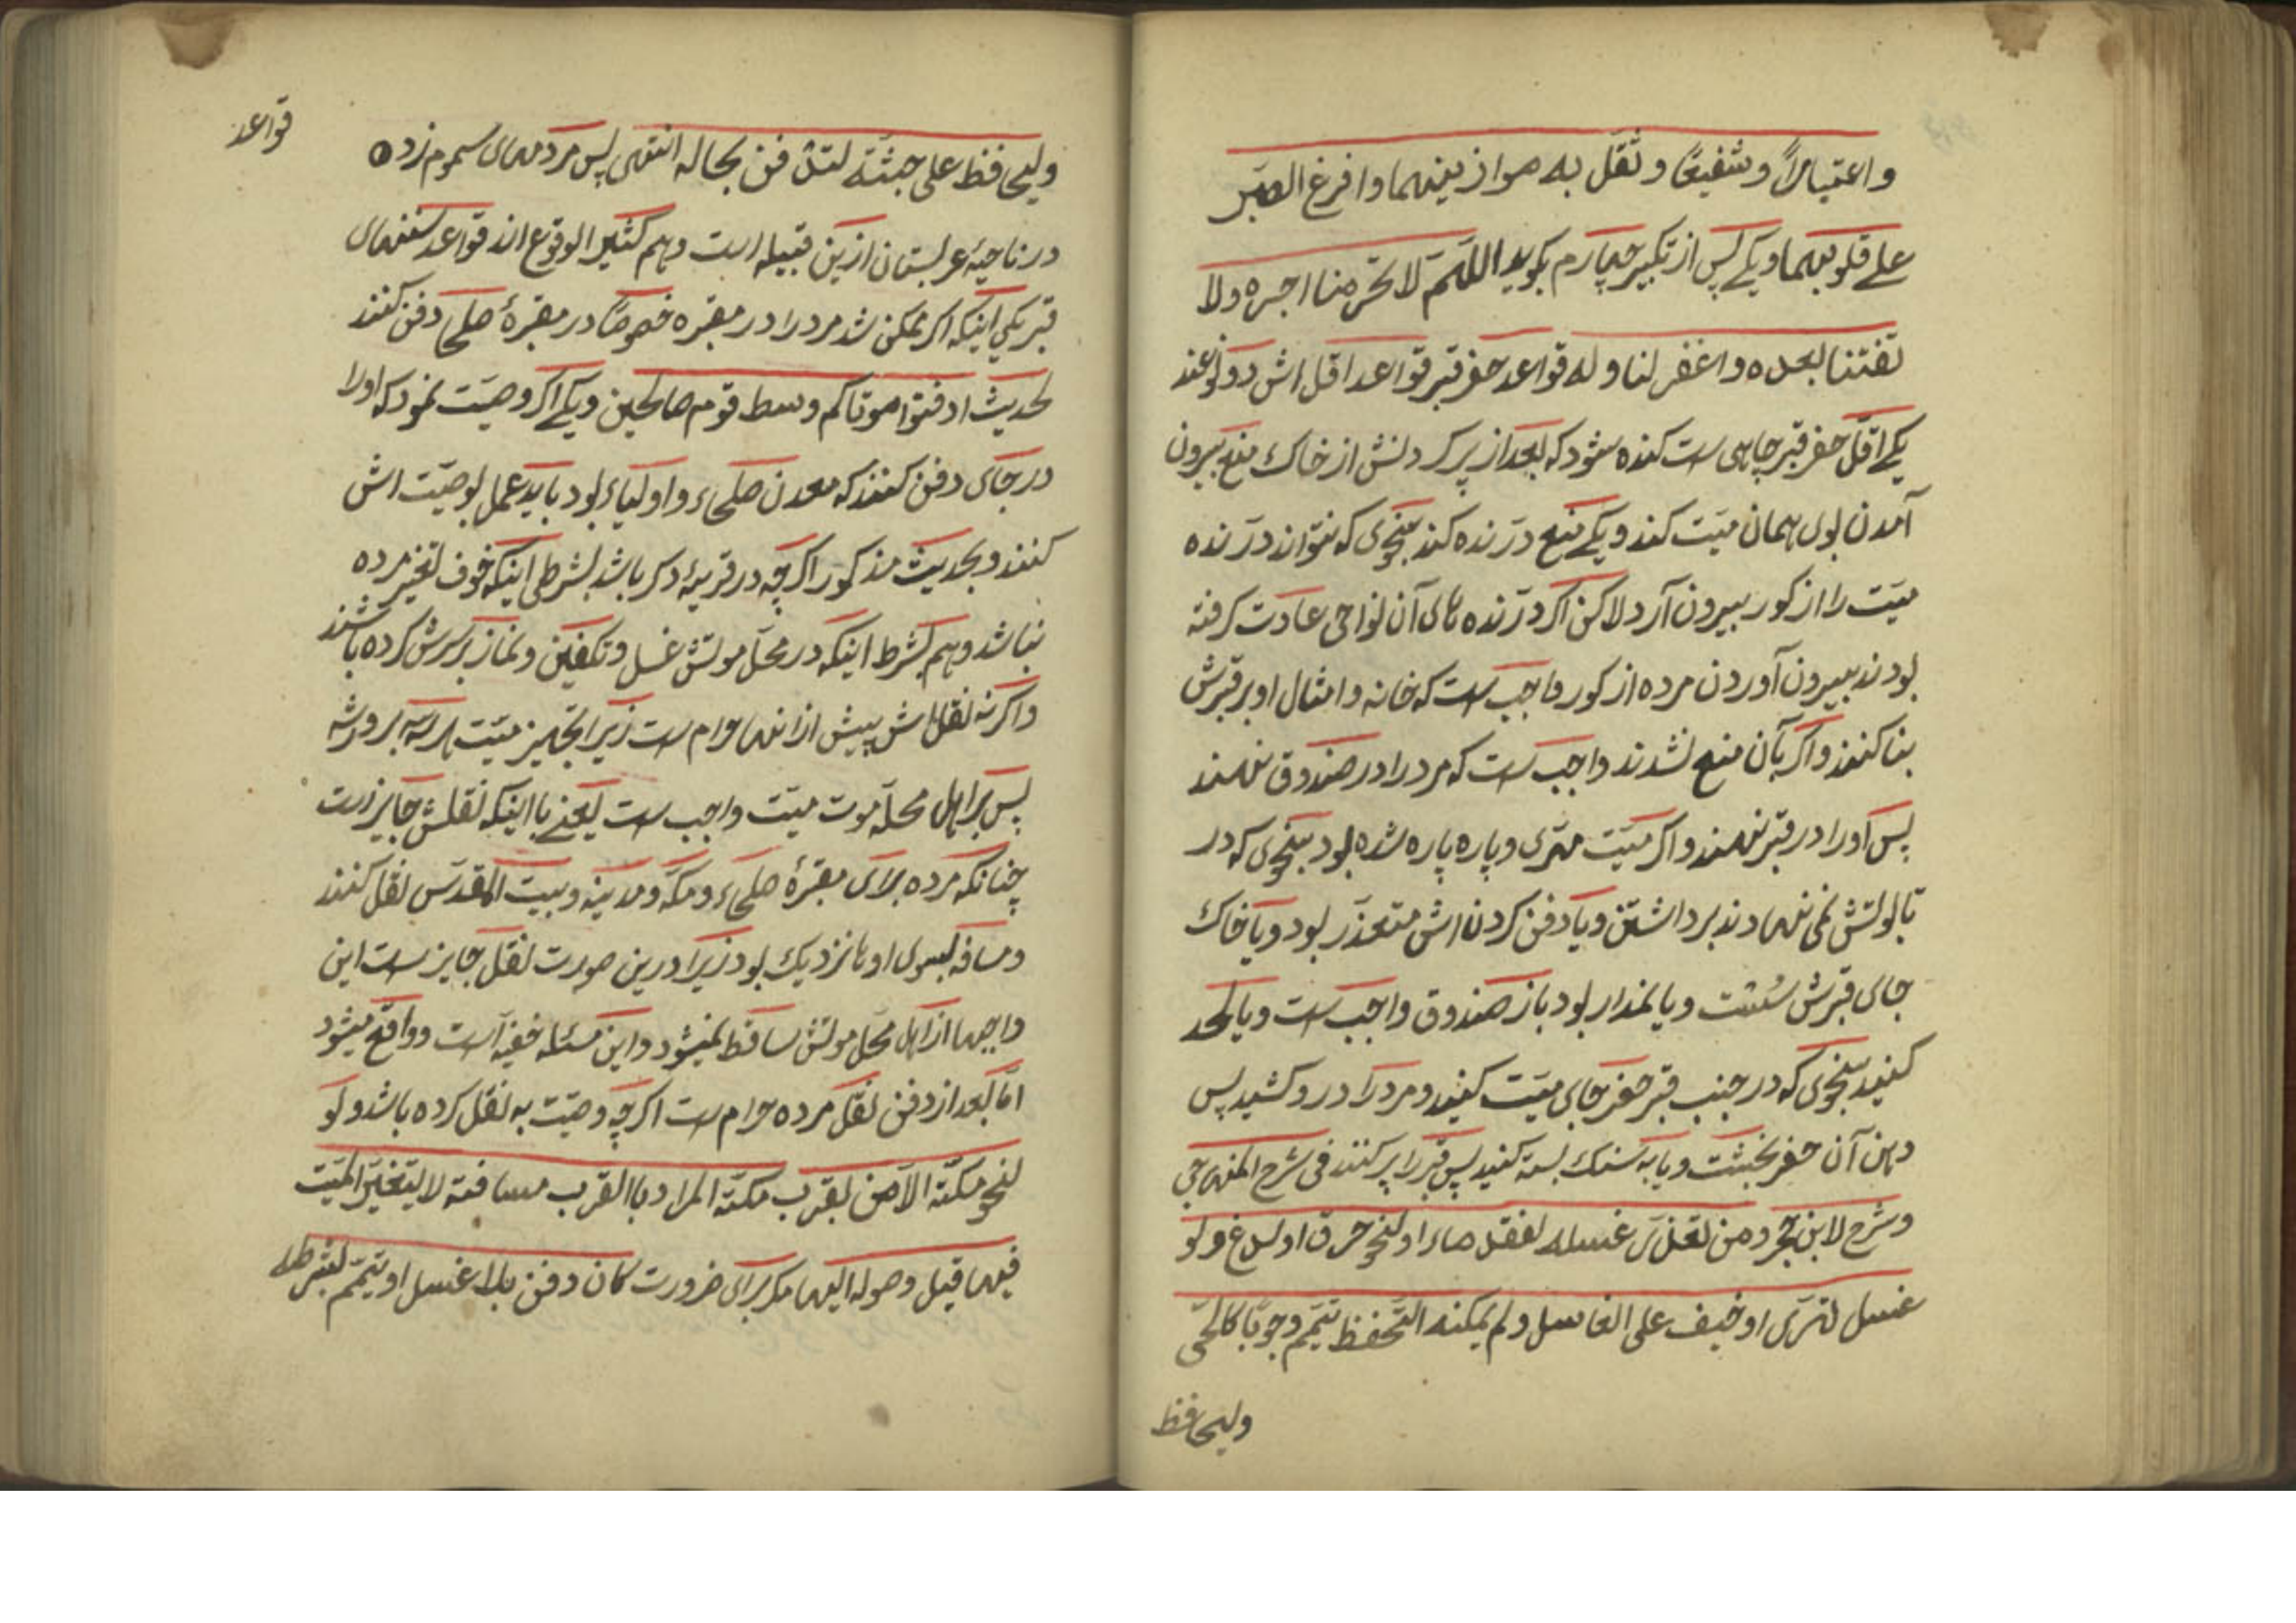 واعتباراً وشفيعًا وثقل به موازينهما وافرغ الصبر
علے قلوبهما ویکے پس از تکبیر چهارم بکوید اللهم لا تحرمنا اجره ولا
تفتنا بعده واغفر لنا وله قواعد حفر قبر قواعد اقل اش دو
یکے اقل حفر قبر چاهی است کنده شود که بعد از پر کردنش از خاک منع بیرون
آمدن بوی همان میت کند ویکے منع درنده کند بنحوی که نتواند درنده
میت را از کور بیرون آرد لاکن اکر درنده های آن نواحی عادت کرفته
بودند بیرون آوردن مرده از کور واجب است که خانه وامثال او بر قبرش
بنا کنند واکر بآن منع نشدند واجب است که مرد را در صندوق نهند
پس اورا در قبر نهند واکر میت متهری و پاره پاره شده بود بنحوی که در
تابوتش نمی نهادند برداشتن ویا دفن کردن اش متعذر بود ویا خاک
جای قبرش سست ویا نمدار بود باز صندوق واجب است ویا لحد
کنید بنحوی که در جنب قبر حفر جای میت کنید ومرد را در و کشید پس
دهن آن حفر بخشت ویا به سنک بسته کنید پس قبر را پر کنند فی شرح المنهاجی
وشرح لابن حجر ومن تعذر غسله لفقد ماء او لنحو حرق او لدغ ولو
غسل تهری او خیف علی الغاسل ولم یمکنه التحفظ تیمم وجوبًا کالحی
ولیحافظ
ولیحافظ علی جثته لتدفن بحاله انتهی پس مردهای سموم زده
در ناحیهٔ عربستان ازین قبیله است وهم کثیر الوقوع اند قواعد سنتهای
قبر یکی اینکه اکر ممکن شد مرد را در مقبره خصوصًا در مقبرهٔ صلحا دفن کنند
لحدیث ادفنوا موتاکم وسط قوم صالحین ویکے اکر وصیت نمود که اورا
در جای دفن کنند که معدن صلحاء واولیاء بود باید عمل بوصیت اش
کنند وبحدیث مذکور اکر چه در قریهٔ دکر باشد بشرطی اینکه خوف تغیر مرده
نباشد وهم بشرط اینکه در محل موتش غسل وتکفین ونماز برسرش کرده باشند
واکر نه نقل اش پیش از انها حرام است زیرا تجهیز میت
پس بر اهل محله موت میت واجب است یعنے با اینکه نقلش جایز است
چنانکه مرده برای مقبرهٔ صلحاء ومکه ومدینه وبیت المقدس نقل کنند
ومسافه بسوی اوها نزدیک بود زیرا درین صورت نقل جایز است این
واجبها از اهل محل موتش ساقط نمیشود واین مسئله خفیه است وواقع میشود
اما بعد از دفن نقل مرده حرام است اکر چه وصیت به نقل کرده باشد ولو
لنحو مکة الآمن بقرب مکة المراد باالقرب مسافته لا یتغیر المیت
فیها قبل وصوله الیها مکر برای ضرورت کان دفن بلا غسل او تیمم بشرطه
قواعد